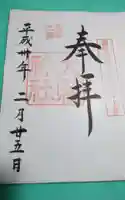 奉拝
平成卅年 二月廿五日